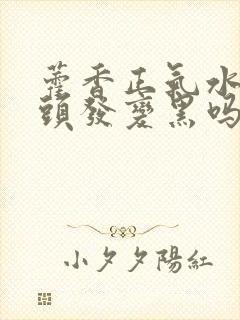 藿香正氣水
頭發變黑吗
小夕夕陽紅